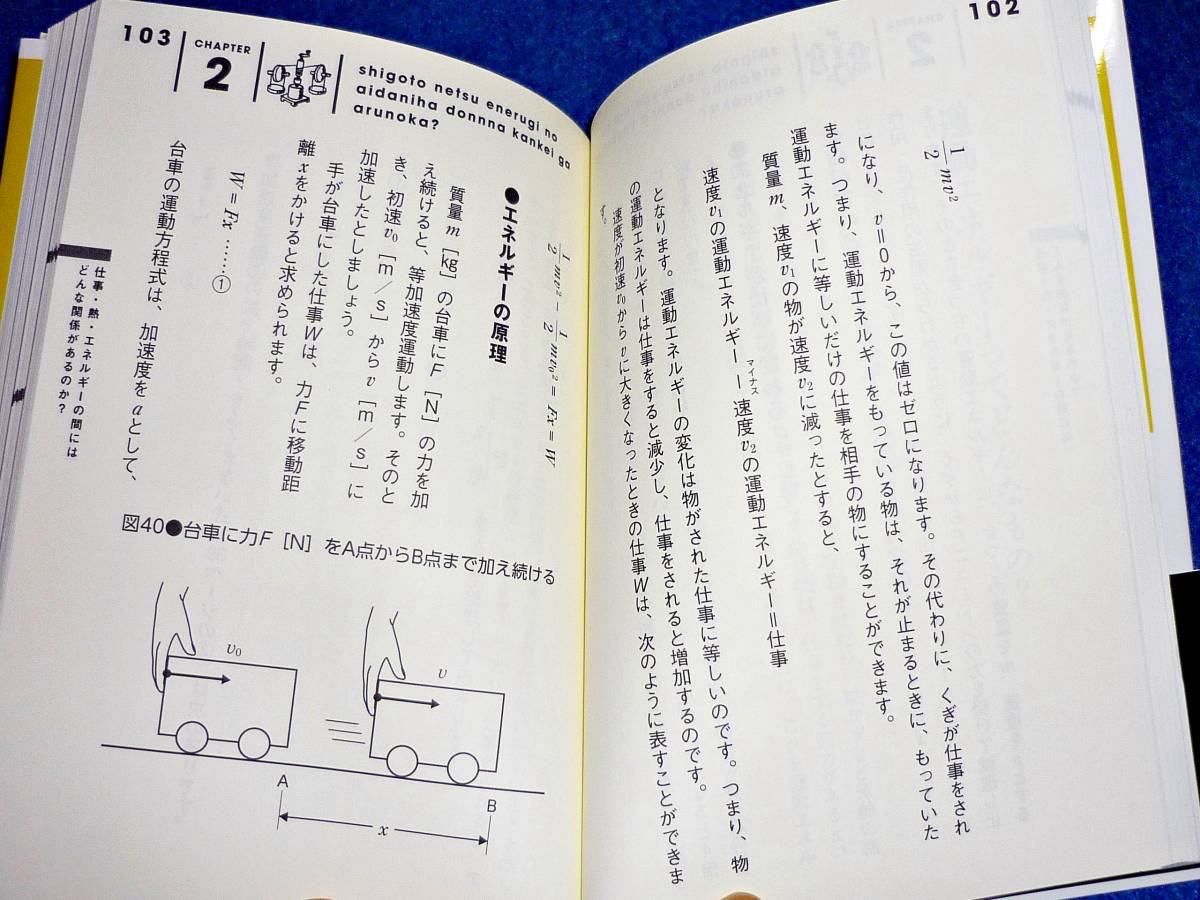 102
1/2 mv²
になり、v＝0から、この値はゼロになります。その代わりに、くぎが仕事をされ
ます。つまり、運動エネルギーをもっている物は、それが止まるときに、もっていた
運動エネルギーに等しいだけの仕事を相手の物にすることができます。
質量m、速度v₁の物が速度v₂に減ったとすると、
速度v₁の運動エネルギー－速度v₂の運動エネルギー＝仕事
マイナス
となります。運動エネルギーの変化は物がされた仕事に等しいのです。つまり、物
の運動エネルギーは仕事をすると減少し、仕事をされると増加するのです。
速度が初速v₀からvに大きくなったときの仕事Wは、次のように表すことができま
す。
103
CHAPTER
2
shigoto netsu enerugi no
aidaniha donnna kankei ga
arunoka?
1/2 mv² − 1/2 mv₀² = Fx = W
●エネルギーの原理
質量m［kg］の台車にF［N］の力を加
え続けると、等加速度運動します。そのと
き、初速v₀［m／s］からv［m／s］に
加速したとしましょう。
手が台車にした仕事Wは、力Fに移動距
離xをかけると求められます。
W = Fx ……①
台車の運動方程式は、加速度をaとして、
仕事・熱・エネルギーの間には
どんな関係があるのか？
図40●台車に力F［N］をA点からB点まで加え続ける
v₀
v
A
B
x